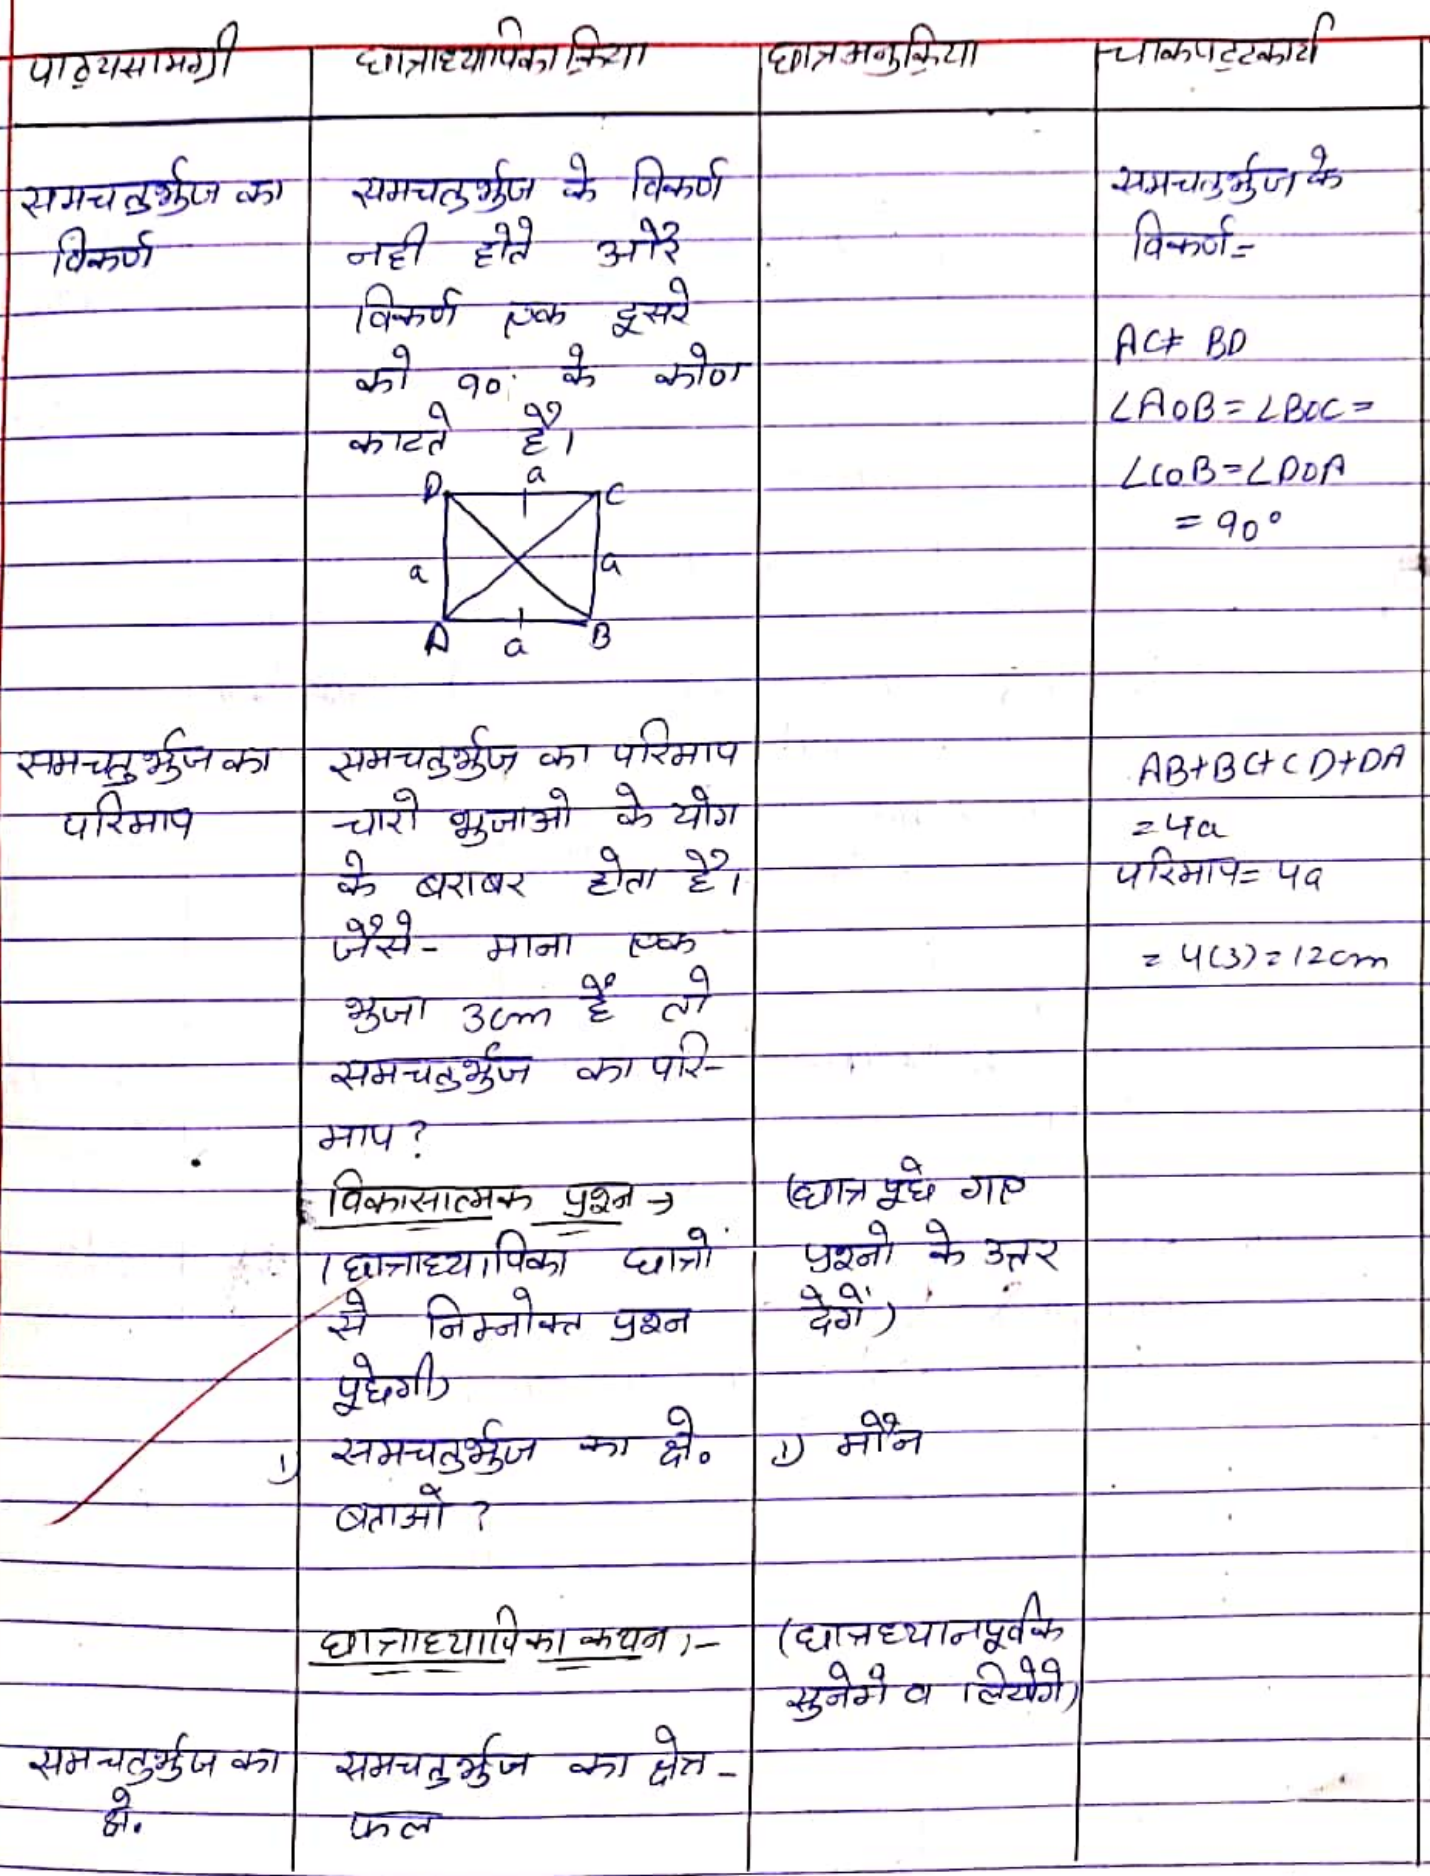 पाठ्यसामग्री
छात्राध्यापिका क्रिया
छात्र अनुक्रिया
चाकपट्टकार्य
समचतुर्भुज का
विकर्ण
समचतुर्भुज के विकर्ण
नही होते और
विकर्ण एक दूसरे
को 90° के कोण
काटते है।
D a C
a a
A a B
समचतुर्भुज के
विकर्ण=
AC≠ BD
∠AOB=∠BOC=
∠COB=∠DOA
= 90°
समचतुर्भुज का
परिमाप
समचतुर्भुज का परिमाप
चारो भुजाओ के योग
के बराबर होता है।
जैसे- माना एक
भुजा 3cm है तो
समचतुर्भुज का परि-
माप?
AB+BC+CD+DA
=4a
परिमाप= 4a
= 4(3)=12cm
विकासात्मक प्रश्न →
(छात्राध्यापिका छात्रो
से निम्नोक्त प्रश्न
पूछेगी)
1) समचतुर्भुज का क्षे०
बताओ?
(छात्र पूछे गए
प्रश्नो के उत्तर
देगें)
1) मौन
छात्राध्यापिका कथन:-
(छात्र ध्यानपूर्वक
सुनेगे व लिखेगे)
समचतुर्भुज का
क्षे.
समचतुर्भुज का क्षेत्र-
फल